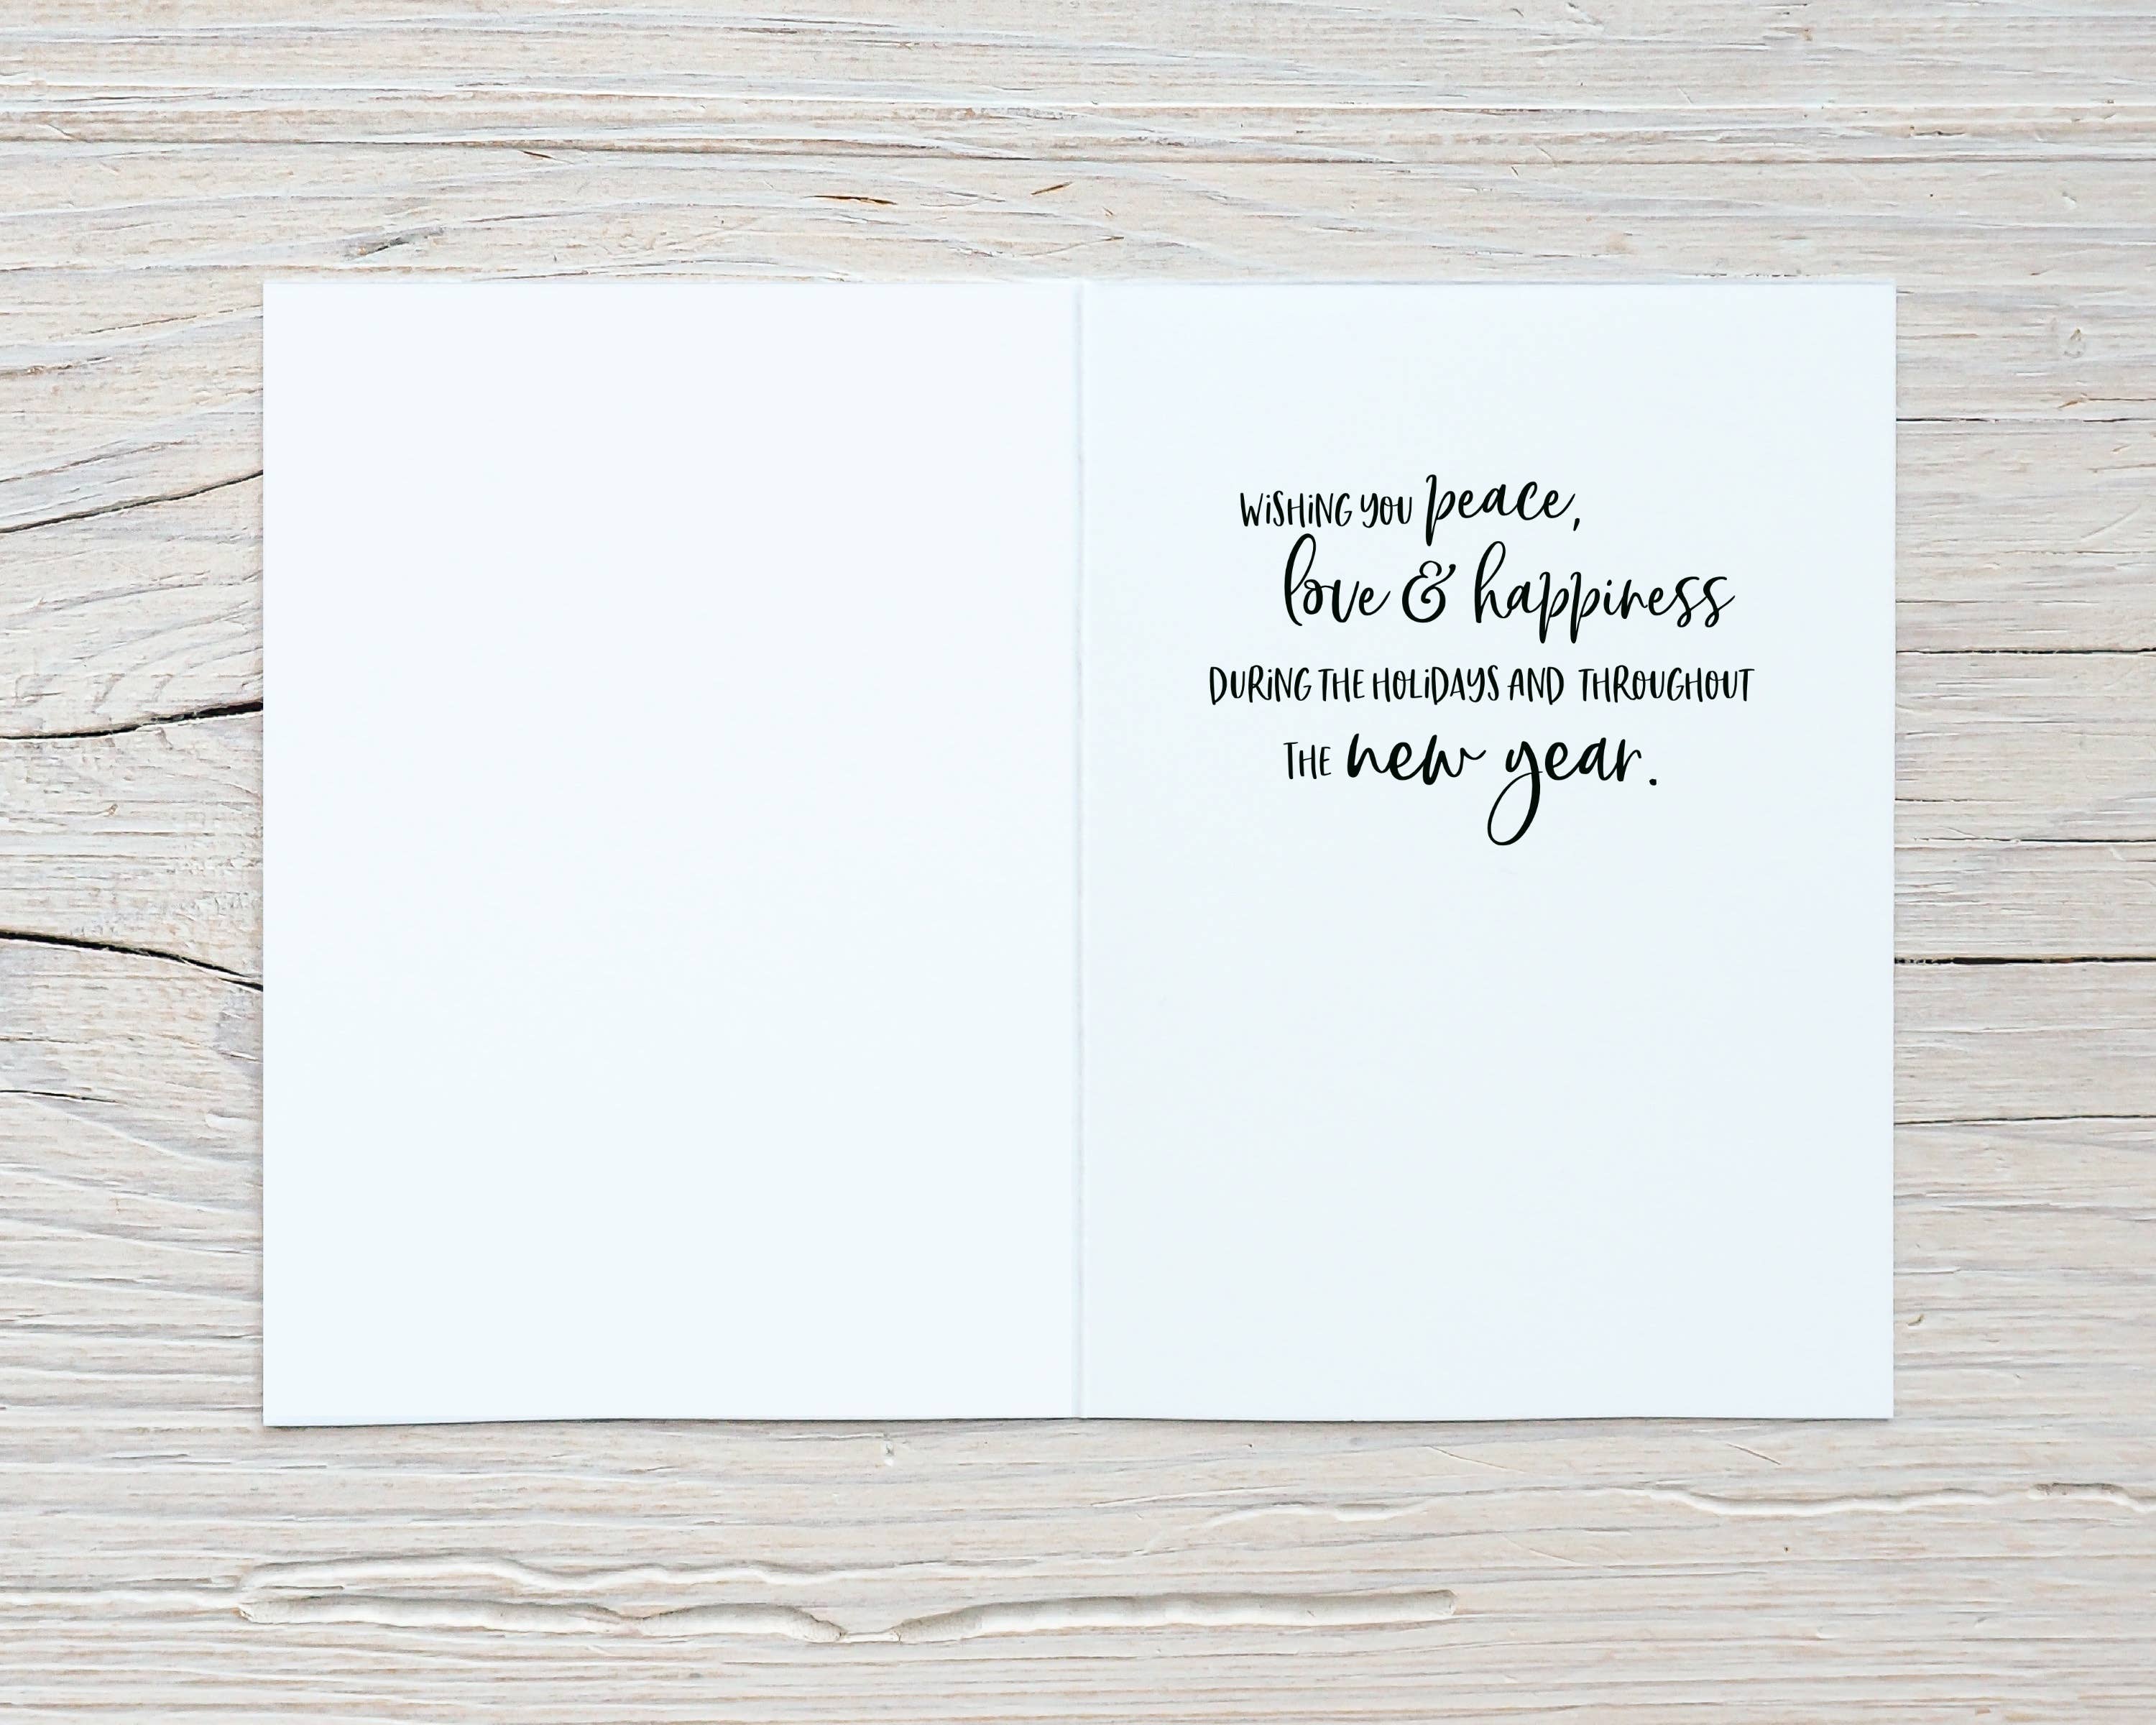 WiSHiNG YOU peace,
love & happiness
DURiNG THE HOLiDAYS AND THROUGHOUT
THE new year.